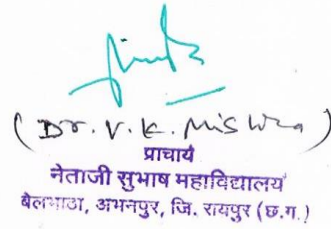 (Dr. V. K. Mishra)
प्राचार्य
नेताजी सुभाष महाविद्यालय
बेलभाठा, अभनपुर, जि. रायपुर (छ.ग.)